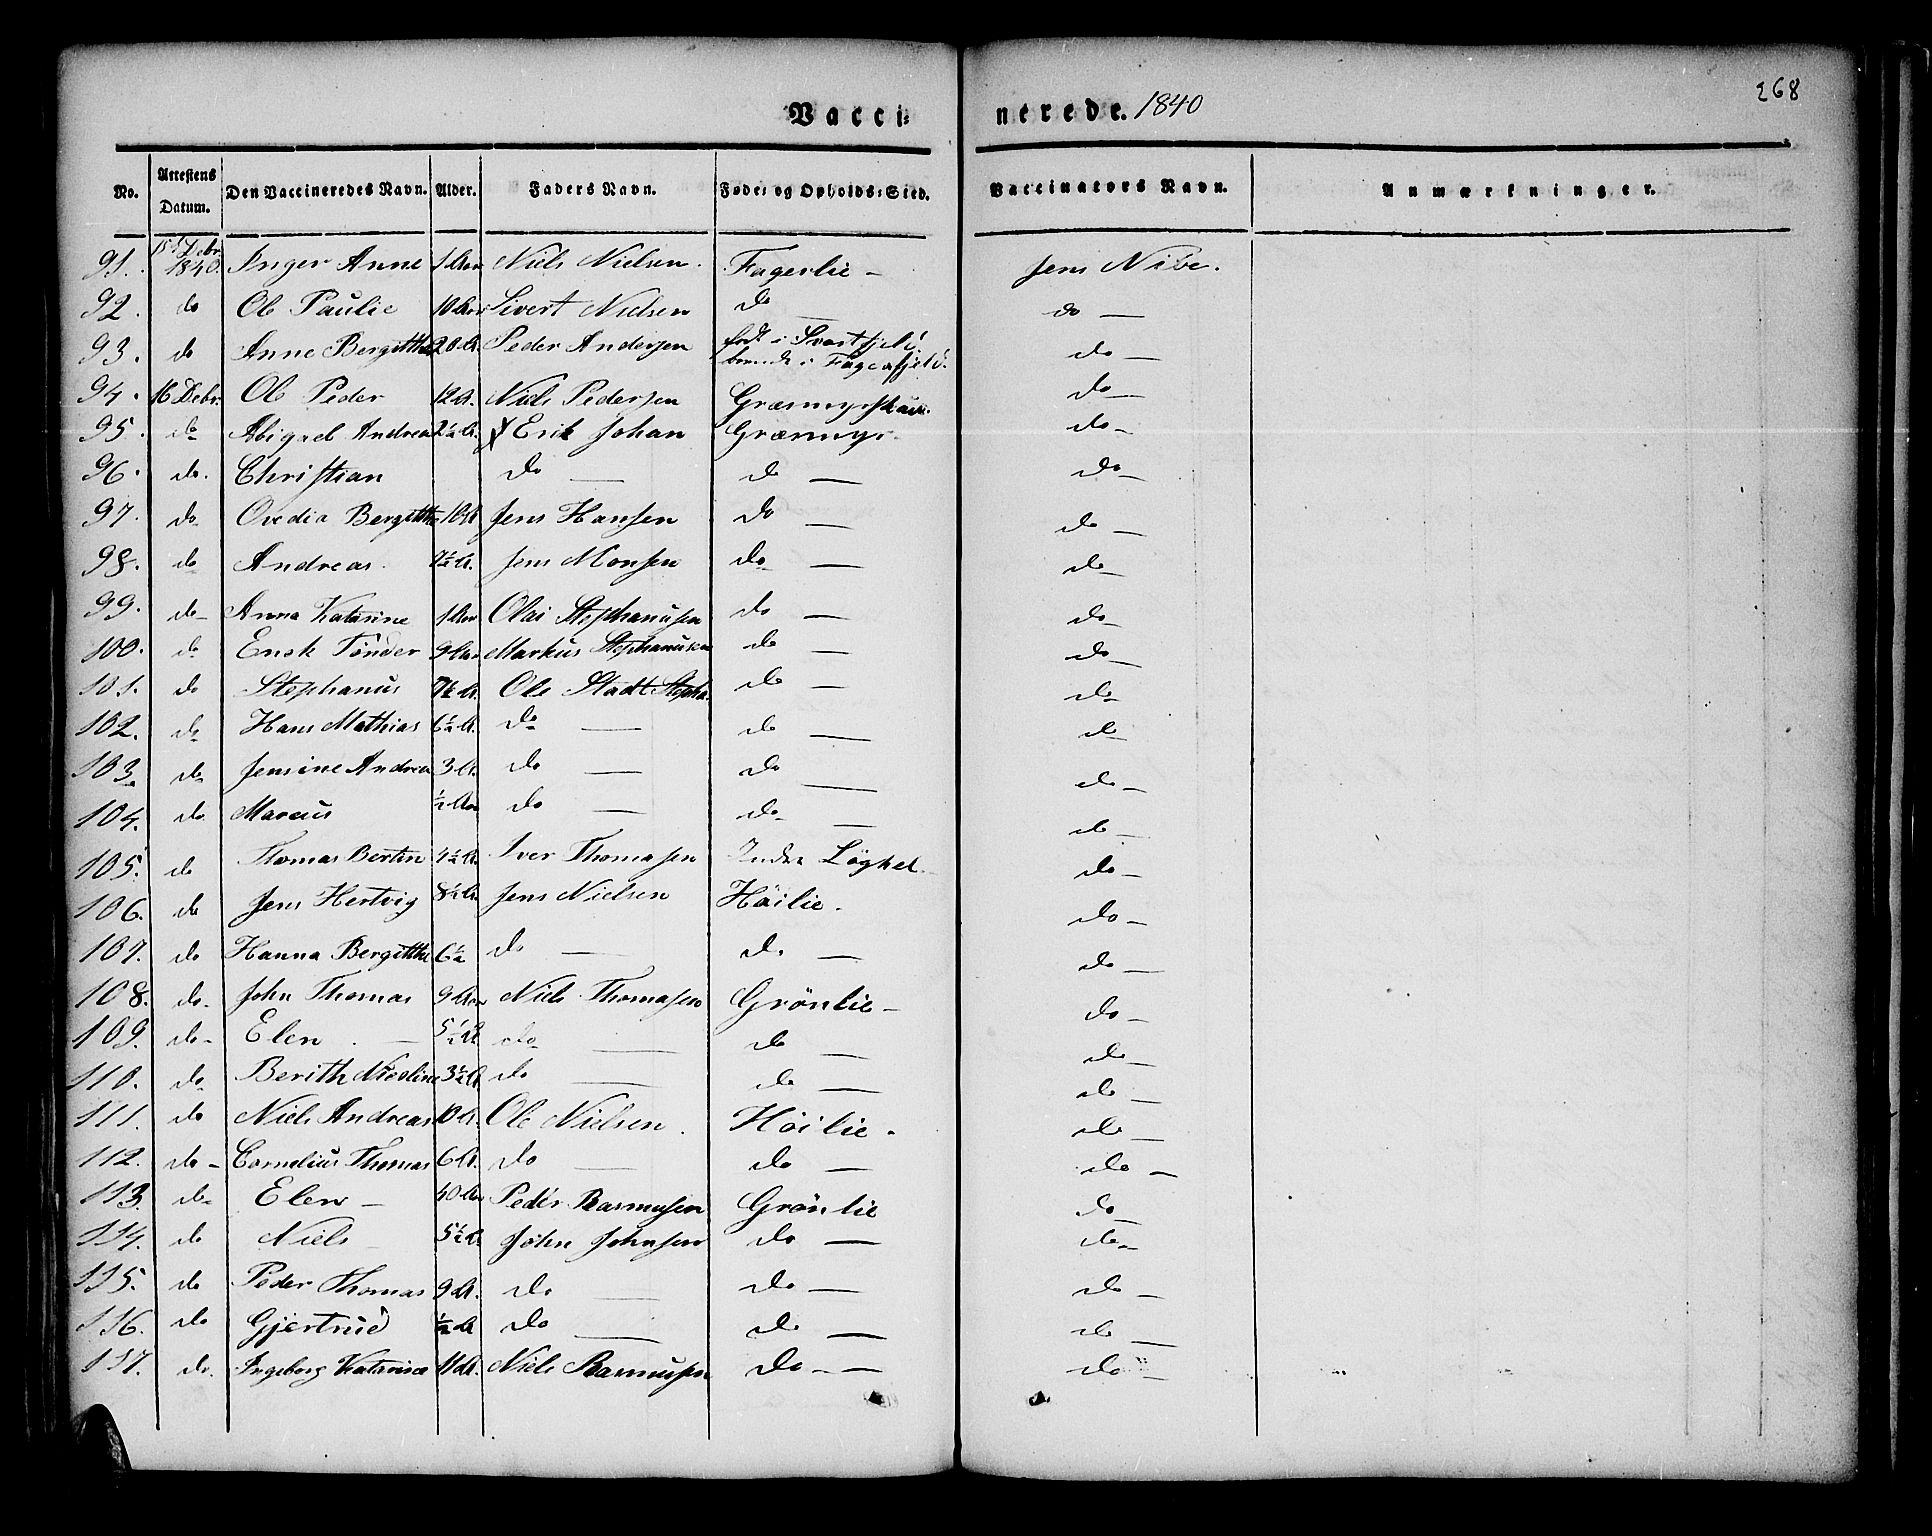 268
Vacci= nerede. 1840
No. Attestens Datum. Den Vaccineredes Navn. Alder. Faders Navn. Føde= og Opholds=Sted. Vaccinators Navn. Anmærkninger.
91. 15 Debr 1840. Inger Anne 1 Aar Niels Nielsen. Fagerlie - Jens Nibe.
92. do Ole Paulie 10 Aar Sivert Nielsen do do -
93. do Anne Bergitthe 20 A. Peder Andersen født i Svartfjeld. boende i Fagerfjeld. do -
94. 16 Debr. Ole Peder 12 A. Niels Pedersen Græsmyrskav. do -
95. do Abigael Andrea 2½ A. Erik Johan Græsmyr. do -
96. do. Christian do - do - do -
97. do Ovedia Bergitthe 10 A Jens Hansen do - do -
98. do Andreas. 7½ A. Jens Monsen do - do -
99. do - Anna Katarine 1 Aar Olai Stephanusen do - do -
100. do Enok Tönder 9 Aar Markus Stephanusen do - do -
101. do Stephanus 7½ A. Ole Stadt Stepha. do - do -
102. do Hans Mathias 6½ A. do - do - do -
103. do Jensine Andrea 3 A. do - do - do -
104. do Marcus ½ Aar do - do - do -
105. do Thomas Bertin 4½ A. Iver Thomasen Indre Löghel. do -
106. do Jens Hertvig 8½ A. Jens Nielsen Höilie. do -
107. do Hanna Bergitthe 6½ do - do - do -
108. do - John Thomas 9 Aar Niels Thomasen Grönlie - do -
109. do - Elen - 5½ A do - do - do -
110. do Berith Nicoline 3½ A do - do - do -
111. do Niels Andreas 10 A. Ole Nielsen. Höilie. do -
112. do - Cornelius Thomas 6 A. do - do - do -
113. do Elen - 40 Aar Peder Rasmusen Grönlie do -
114. do Niels - 5½ A. John Johnsen do - do -
115. do Peder Thomas 9 A. do - do - do -
116. do Gjertrud ½ A do - do - do -
117. do. Ingeborg Katarina 11 A. Niels Rasmusen do - - do -